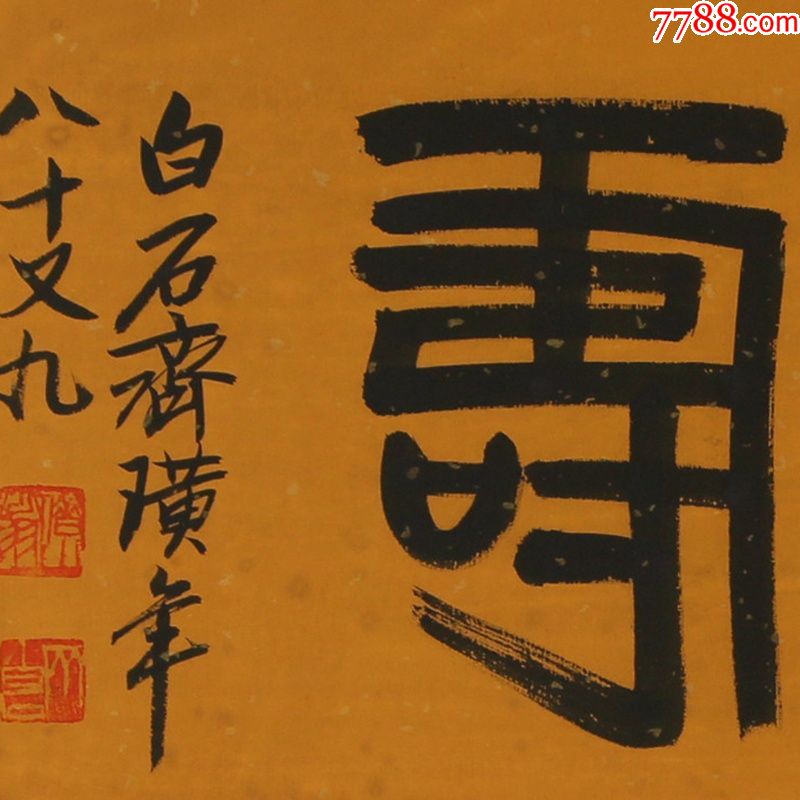 7788.com
壽
白石齊璜年
八十又九